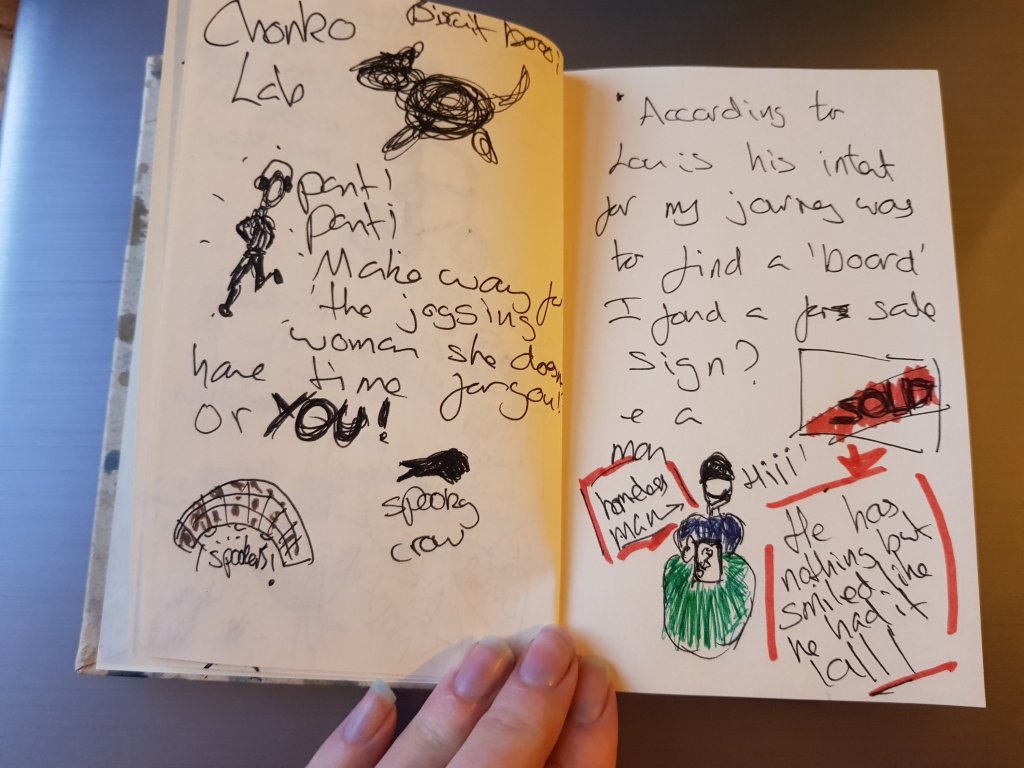 Chonko
Lab
Biscuit
pant!
pant!
Make way for
the jogging
woman she doesn
have time for you!
or YOU!
spooky
crow
• According to
Louis his intent
for my journey was
to find a 'board'
I fond a for sale
sign?
SOLD
e a
man
homeless
man
Hiii'
He has
nothing but
smiled like
he had it
all!